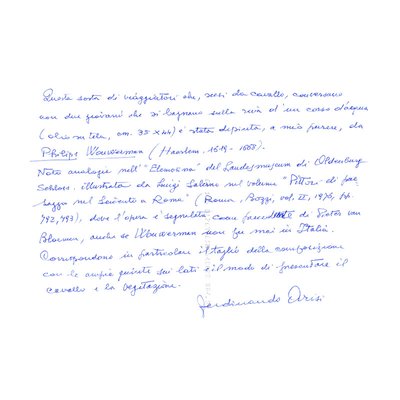 Questa sosta di viaggiatori che, scesi da cavallo, conversano
con due giovani che si bagnano sulla riva d'un corso d'acqua
(olio su tela, cm. 35 x 44) è stata dipinta, a mio parere, da
Philips Wouwerman (Haarlem, 1619-1668).
Noto analogie nell'"Elemosina" del Landesmuseum di Oldenburg
Schloss, illustrata da Luigi Salerno nel volume "Pittori di pae-
saggio nel Seicento a Roma" (Roma, Bozzi, vol. II, 1976, pp.
792, 793), dove l'opera è segnalata come di Pieter van
Bloemen, anche se Wouwerman non fu mai in Italia.
Corrispondono in particolare il taglio della composizione
con le ampie quinte sui lati e il modo di presentare il
cavallo e la vegetazione.
Ferdinando Arisi